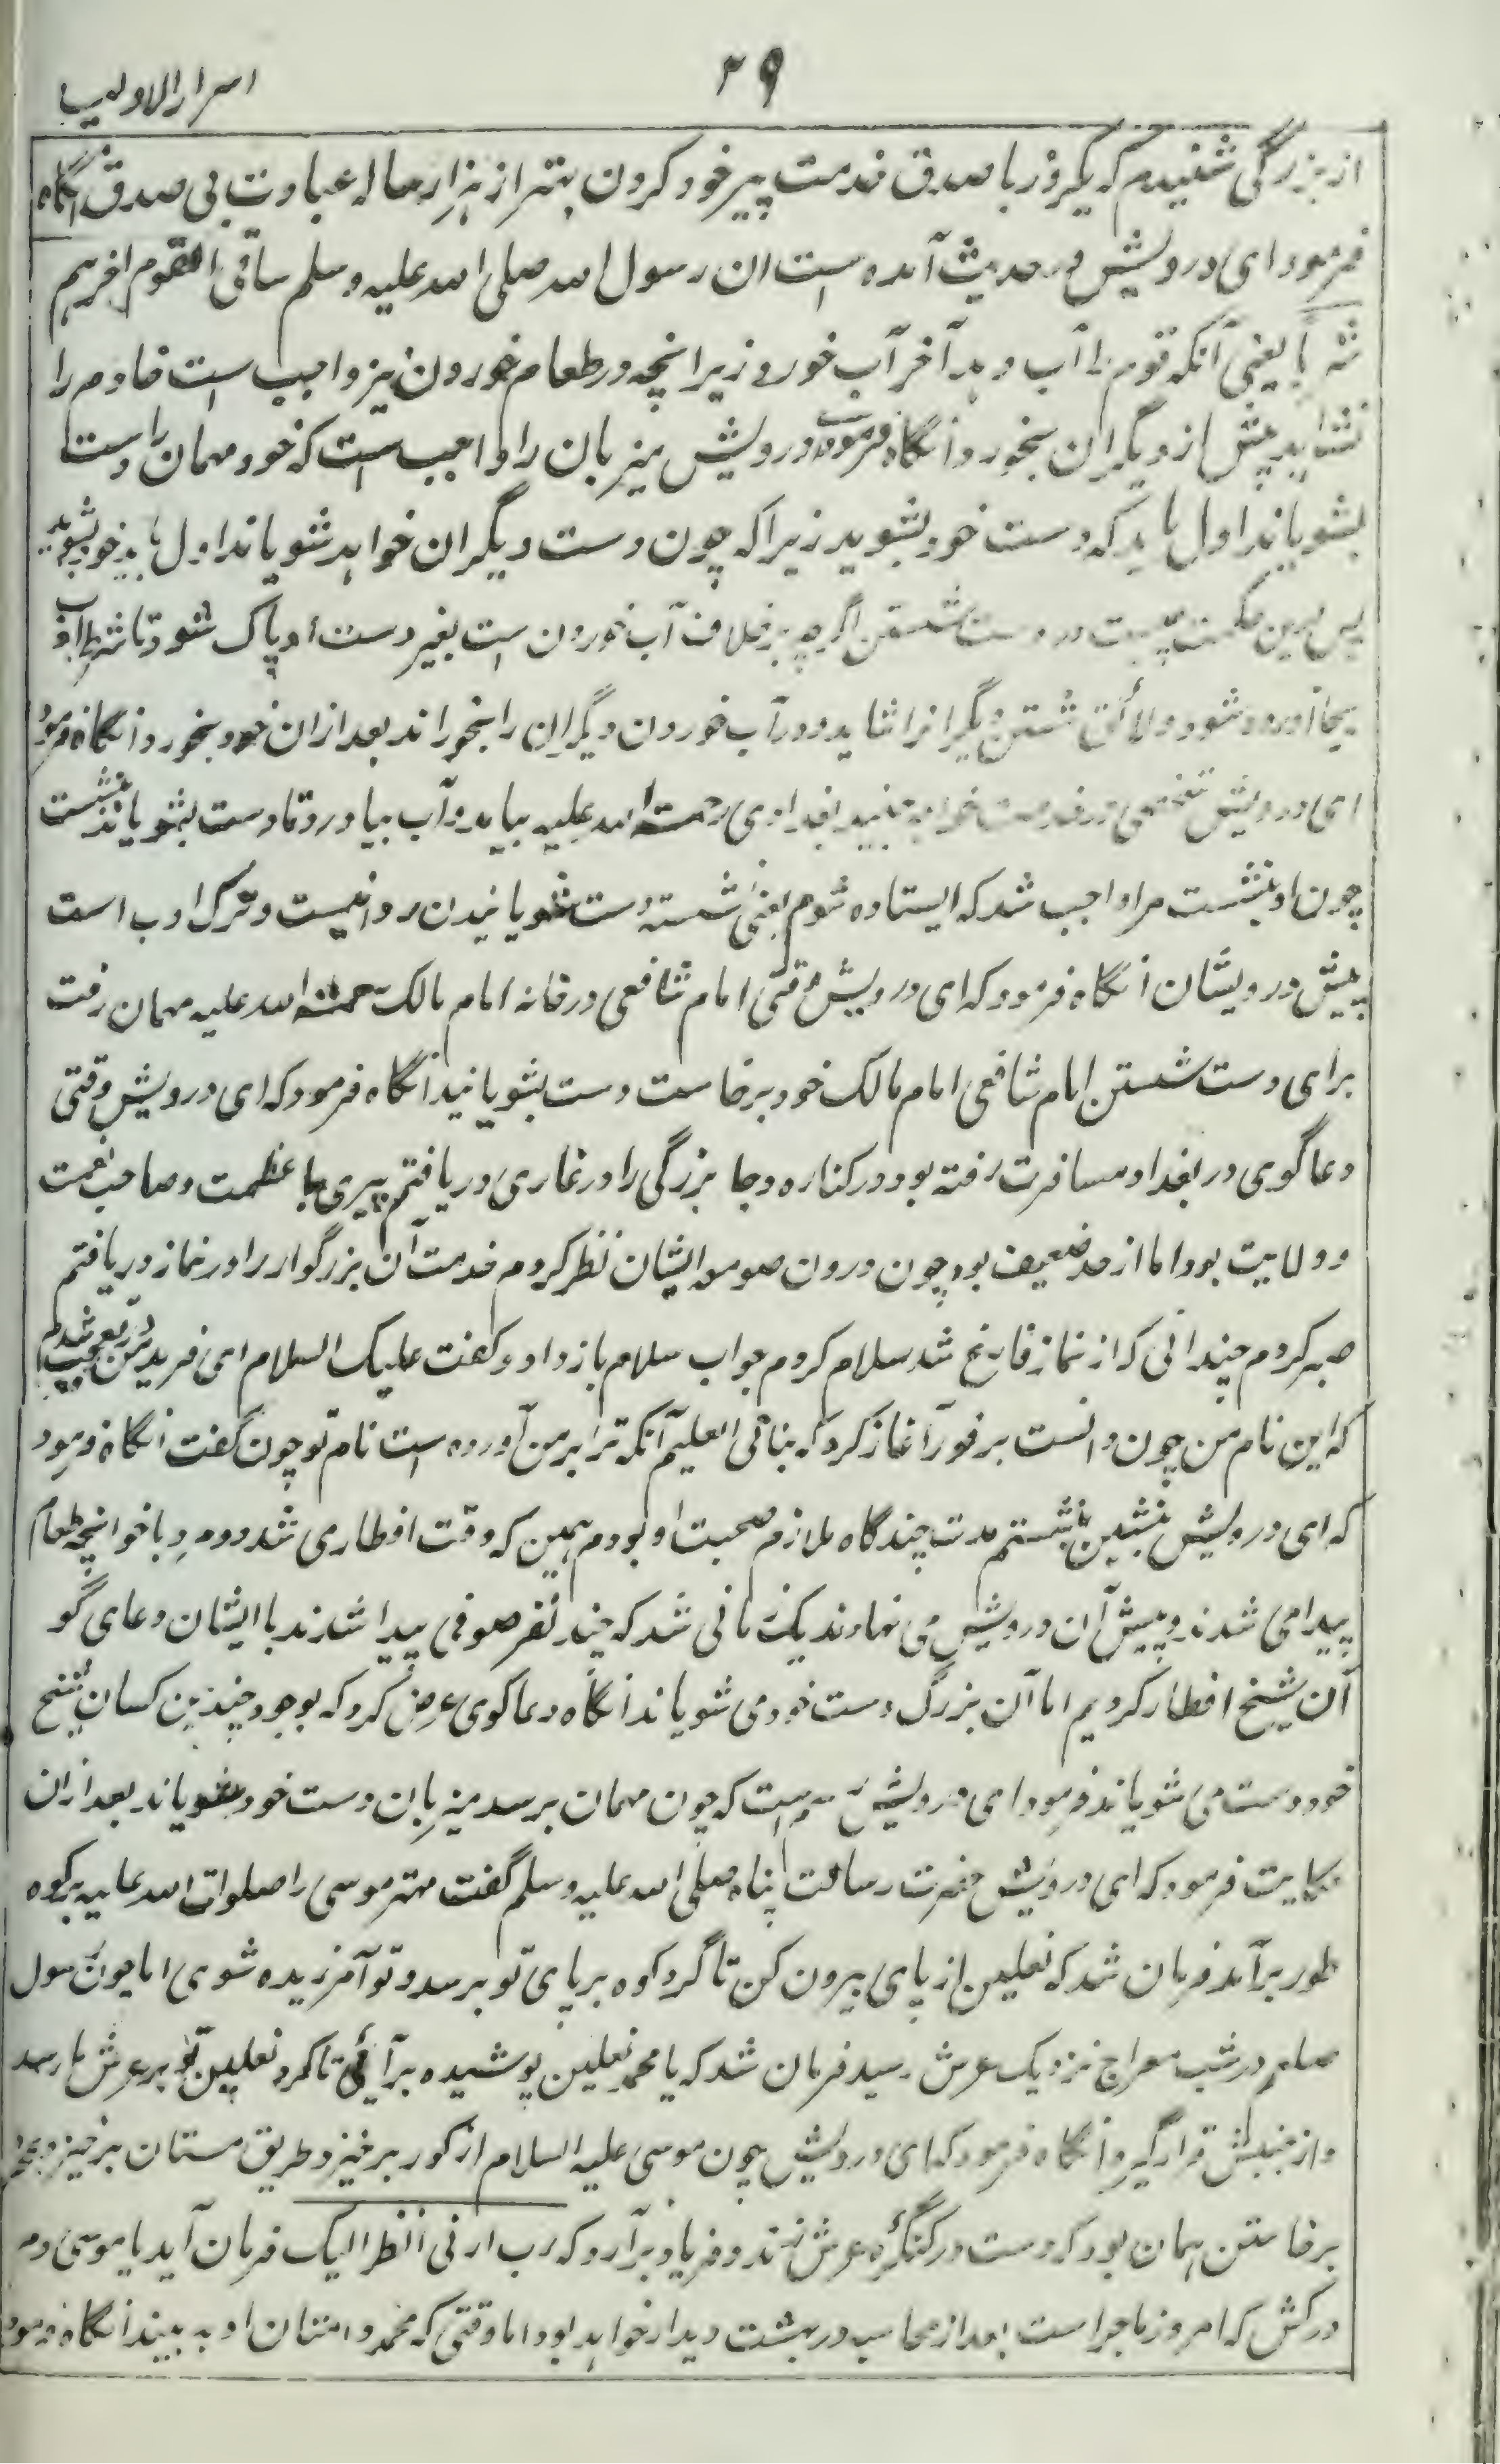 ۲۹
اسرار الاولیا
از بزرگی شنیدم که یکروز با صدق خدمت پیر خود کردن بهتر از هزار ساله عبادت بی صدق انگاه
فرمود ای درویش در حدیث آمده است ان رسول الله صلی الله علیه وسلم ساقی القوم اخرهم
شربا یعنی آنکه قوم را آب دهد آخر آب خورد زیرا نچه در طعام خوردن نیز واجب است خادم را
نشاید پیش از دیگران بخورد انگاه فرمود درویش میزبان را واجب است که خود مهمان را دست
بشویاند اول باید که دست خود بشوید زیرا که چون دست دیگران خواهد شویاند اول باید خود بشوید
پس درین حکمت چیست در دست شستن اگرچه برخلاف آب خوردن است بغیر دست او پاک شود تا شرط ادب
بجا آورده شود و لائق شستن دیگرانرا شاید و در آب خوردن دیگران را بخوراند بعد ازان خود بخورد انگاه فرمود
ای درویش شخصی در خدمت خواجه جنید بغدادی رحمة الله علیه بیامد و آب بیاورد تا دست بشویاند بنشست
چون او بنشست مرا واجب شد که ایستاده شوم یعنی نشسته دست شویانیدن روا نیست و ترک ادب است
پیش درویشان انگاه فرمود که ای درویش وقتی امام شافعی در خانه امام مالک رحمة الله علیه مهمان رفت
برای دست شستن امام شافعی امام مالک خود برخاست دست بشویانید انگاه فرمود که ای درویش وقتی
دعاگوی در بغداد مسافرت رفته بود در کناره دجا بزرگی را در غاری دریافتم پیری با عظمت و صاحب نعمت
و ولایت بود اما از حد ضعیف بود چون درون صومعه ایشان نظر کردم خدمت آن بزرگوار را در نماز دریافتم
صبر کردم چندانی که از نماز فارغ شد سلام کردم جواب سلام باز داد و گفت علیک السلام ای فرید من در تعجب شدم
که این نام من چون دانست بر فور آغاز کرد که نبانی العلیم آنکه ترا بر من آورده است نام تو چون گفت انگاه فرمود
که ای درویش بنشین بنشستم مدت چندگاه ملازم صحبت او بودم همین که وقت افطاری شد دو مرد با خوانچه طعام
پیدا می شدند و پیش آن درویش می نهادند یک زمانی شد که چند نفر صوفی پیدا شدند با ایشان دعای گو
آن شیخ افطار کردیم اما آن بزرگ دست خود می شویاند انگاه دعاگوی عرض کرد که بوجود چندین کسان شیخ
خود دست می شویاند فرمود ای درویش رسم است که چون مهمان برسد میزبان دست خود بشویاند بعد ازان
حکایت فرمود که ای درویش حضرت رسالت پناه صلی الله علیه وسلم گفت مهتر موسی را صلوات الله علیه بر کوه
طور برآمد فرمان شد که نعلین از پای بیرون کن تا گرد کوه بر پای تو برسد و تو آمرزیده شوی اما چون رسول
صلعم در شب معراج نزدیک عرش رسید فرمان شد که یا محمد نعلین پوشیده برآئی تا گرد نعلین تو بر عرش ما رسد
و از جنبش قرار گیرد انگاه فرمود که ای درویش چون موسی علیه السلام از گور برخیزد طریق مستان برخیزد بمجرد
برخاستن همان بود که دست در کنگره عرش زند و فریاد برآرد که رب ارنی انظر الیک فرمان آید یا موسی دم
درکش که امروز ماجرا است بعد از محاسبه در بهشت دیدار خواهد بود اما وقتی که محمد و امتنان او به بیند انگاه فرمود